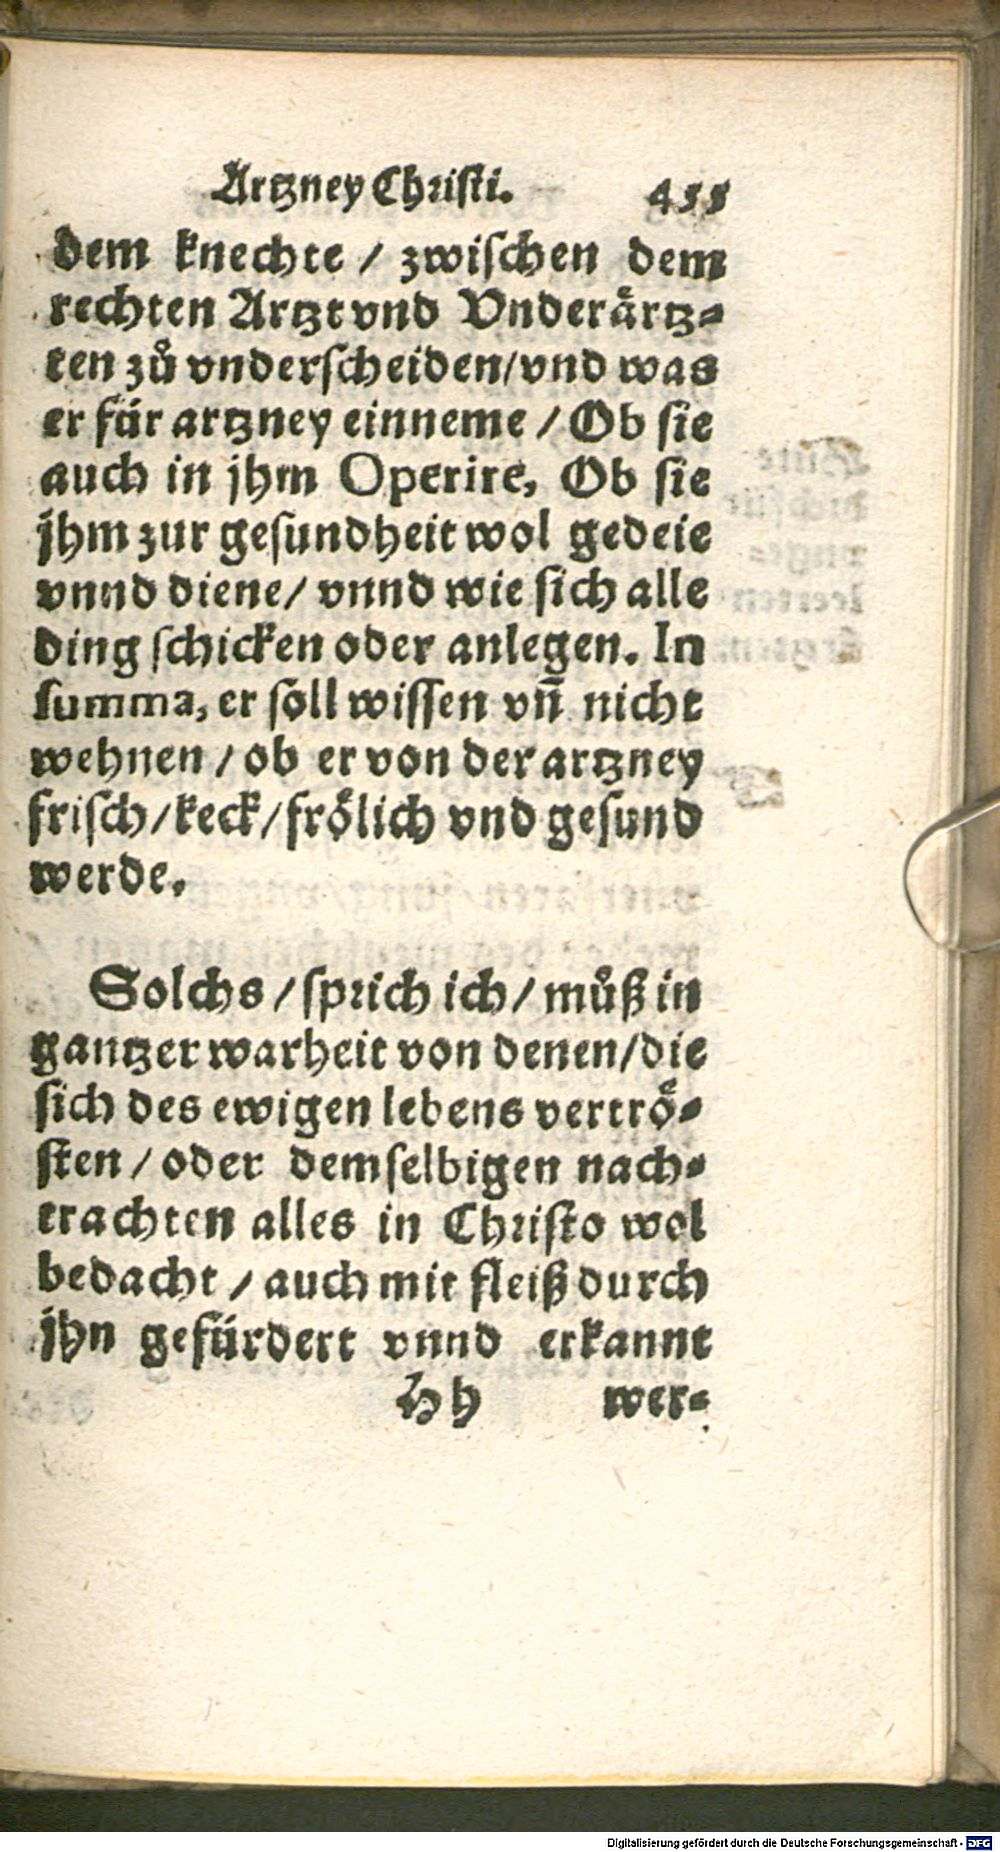 Artzney Christi. 455
dem knechte / zwischen dem
rechten Artzt vnd Vnderaͤrtz-
ten zuͦ vnderscheiden/vnd was
er für artzney einneme / Ob sie
auch in jhm Operire, Ob sie
jhm zur gesundheit wol gedeie
vnnd diene/ vnnd wie sich alle
ding schicken oder anlegen. In
summa, er soll wissen vn̄ nicht
wehnen / ob er von der artzney
frisch/keck/froͤlich vnd gesund
werde.
Solchs / sprich ich / muͦß in
gantzer warheit von denen/die
sich des ewigen lebens vertroͤ-
sten / oder demselbigen nach-
trachten alles in Christo wol
bedacht / auch mit fleiß durch
jhn gefürdert vnnd erkannt
Hh wer-
Digitalisierung gefördert durch die Deutsche Forschungsgemeinschaft - DFG